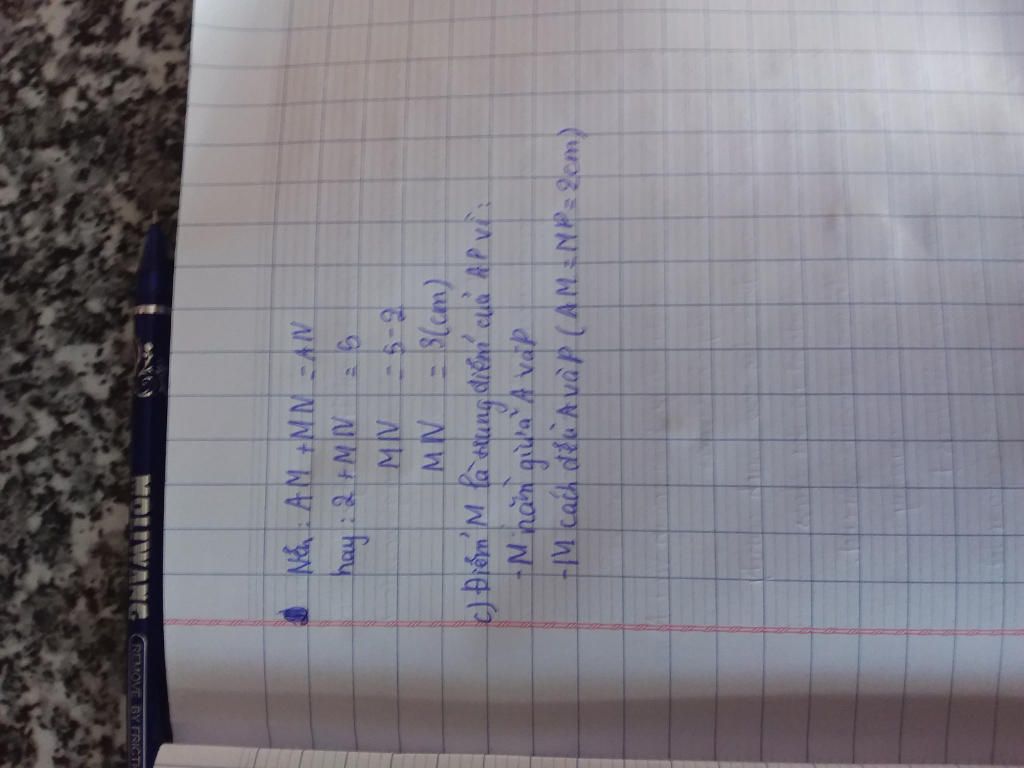 Nên: AM + MN = AN
hay: 2 + MN = 5
MN = 5 - 2
MN = 3 (cm)
c) Điểm M là trung điểm của AP vì:
- M nằm giữa A và P
- M cách đều A và P (AM = MP = 2cm)
REMOVE BY FRICTI